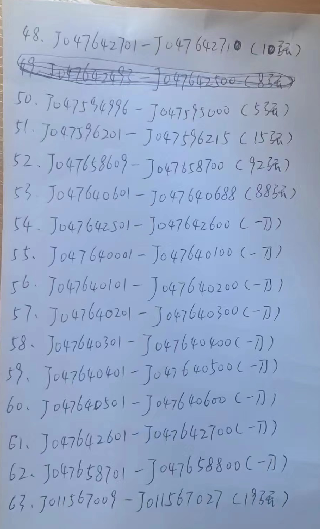 48. J047642701-J047642710(10张)
49. J047642493-J047642500(8张)
50. J047594996-J047595000(5张)
51. J047596201-J047596215(15张)
52. J047658609-J047658700(92张)
53. J047640601-J047640688(88张)
54. J047642501-J047642600(一刀)
55. J047640001-J047640100(一刀)
56. J047640101-J047640200(一刀)
57. J047640201-J047640300(一刀)
58. J047640301-J047640400(一刀)
59. J047640401-J047640500(一刀)
60. J047640501-J047640600(一刀)
61. J047642601-J047642700(一刀)
62. J047658701-J047658800(一刀)
63. J011567009-J011567027(19张)